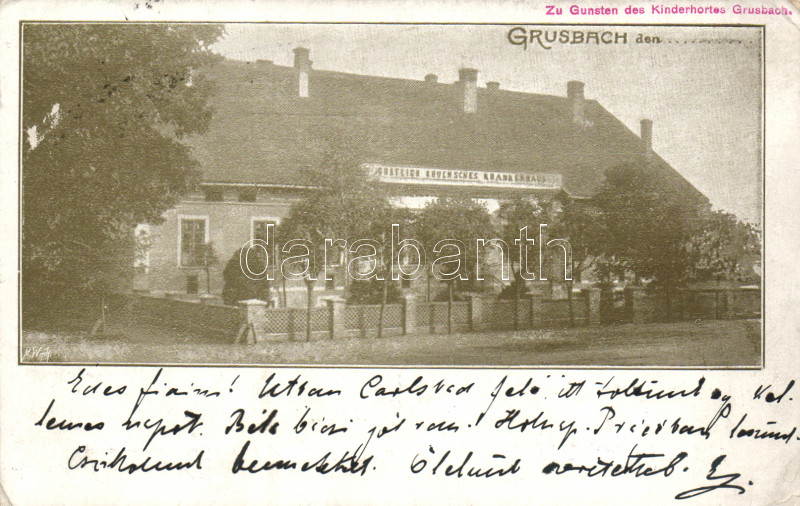 Zu Gunsten des Kinderhortes Grusbach.
GRUSBACH den
KHUEN'SCHES KRANKENHAUS
darabanth
Edes fiaim! Utban Carlsbad felé itt töltünk egy kel-
lemes napot. Béla bácsi jól van! Holnap Prágában leszünk.
Csókolunk benneteket. Ölelünk szeretettel.